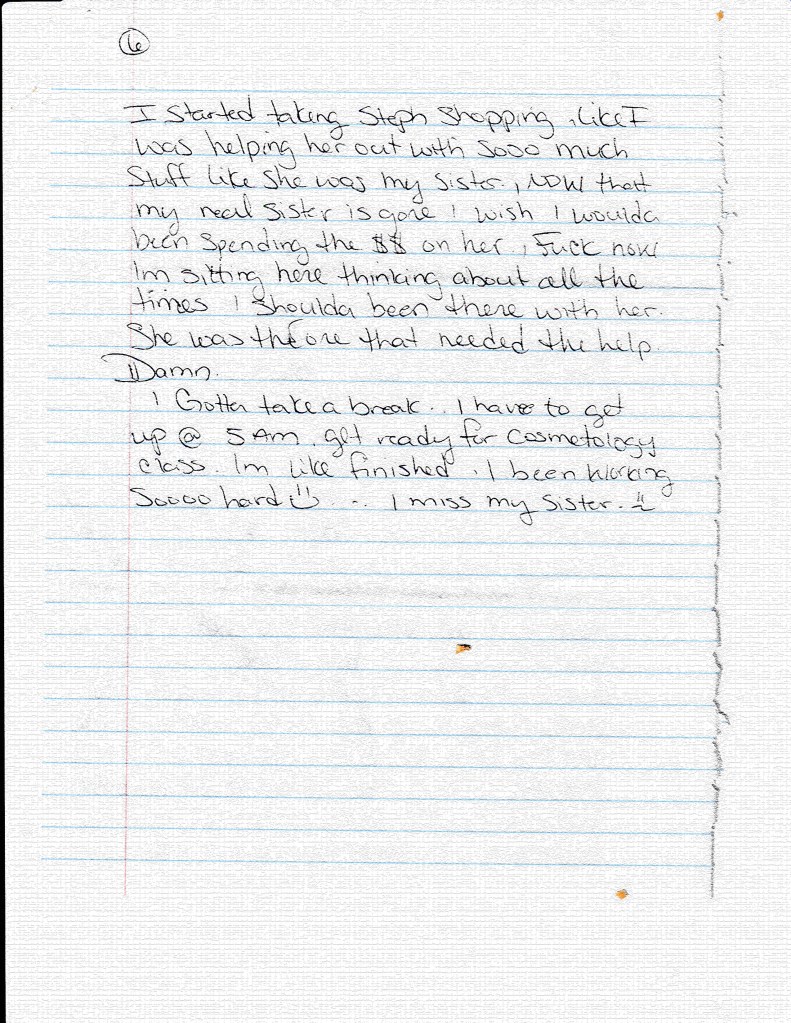 6
I Started taking Steph Shopping, like I
was helping her out with Sooo much
Stuff like She was my Sister., NOW that
my real Sister is gone I wish I woulda
been Spending the $$ on her., Fuck now
Im sitting here thinking about all the
times I Shoulda been there with her.
She was the one that needed the help.
Damn.
I Gotta take a break.. I have to get
up @ 5 Am. get ready for cosmetology
class. Im like finished. I been working
Soooo hard :) .. I miss my Sister. :(